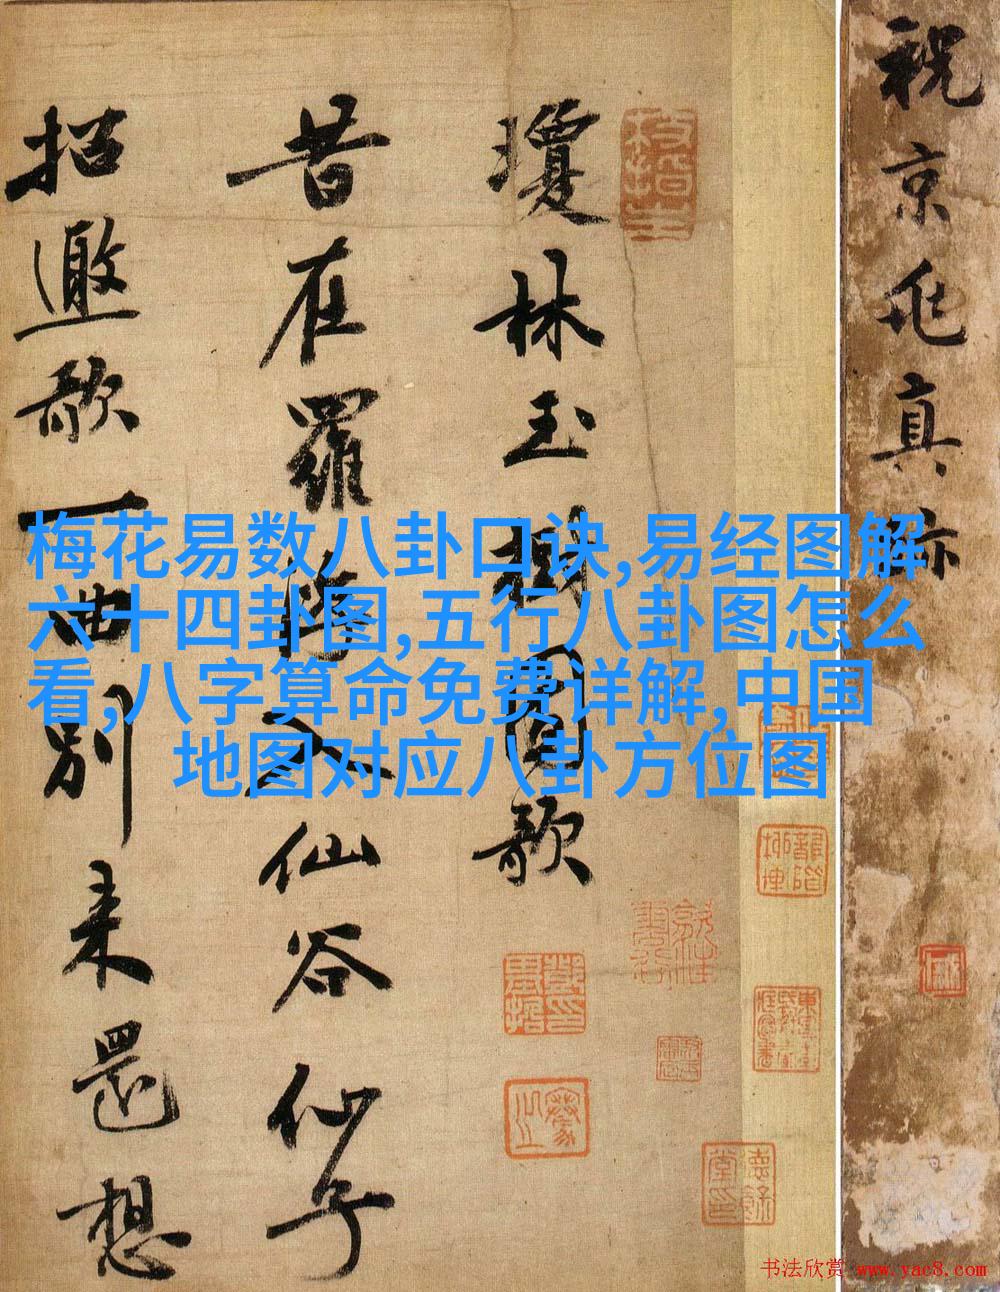 祝京兆真跡
瓊林玉樹圖歌
昔在羅浮入仙谷仙子
招邀歌一曲別来還想
梅花易数八卦口诀,易经图解
六十四卦图,五行八卦图怎么
看,八字算命免费详解,中国
地图对应八卦方位图
书法欣赏 www.yac8.com